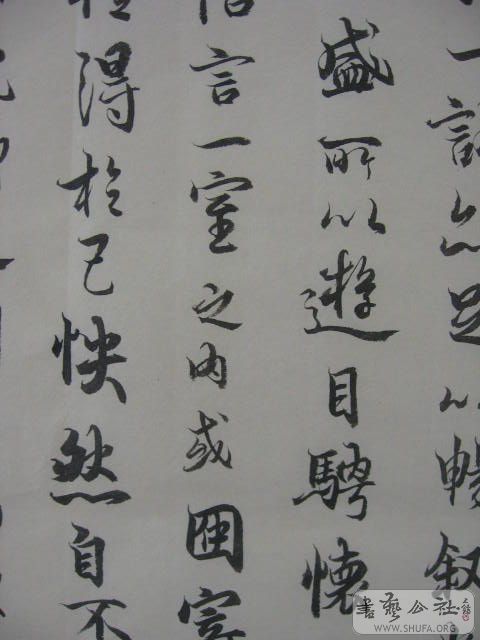 一詠亦足以暢叙
盛所以遊目騁懷
悟言一室之内或因寄
得於己怏然自不
書藝公社
WWW.SHUFA.ORG